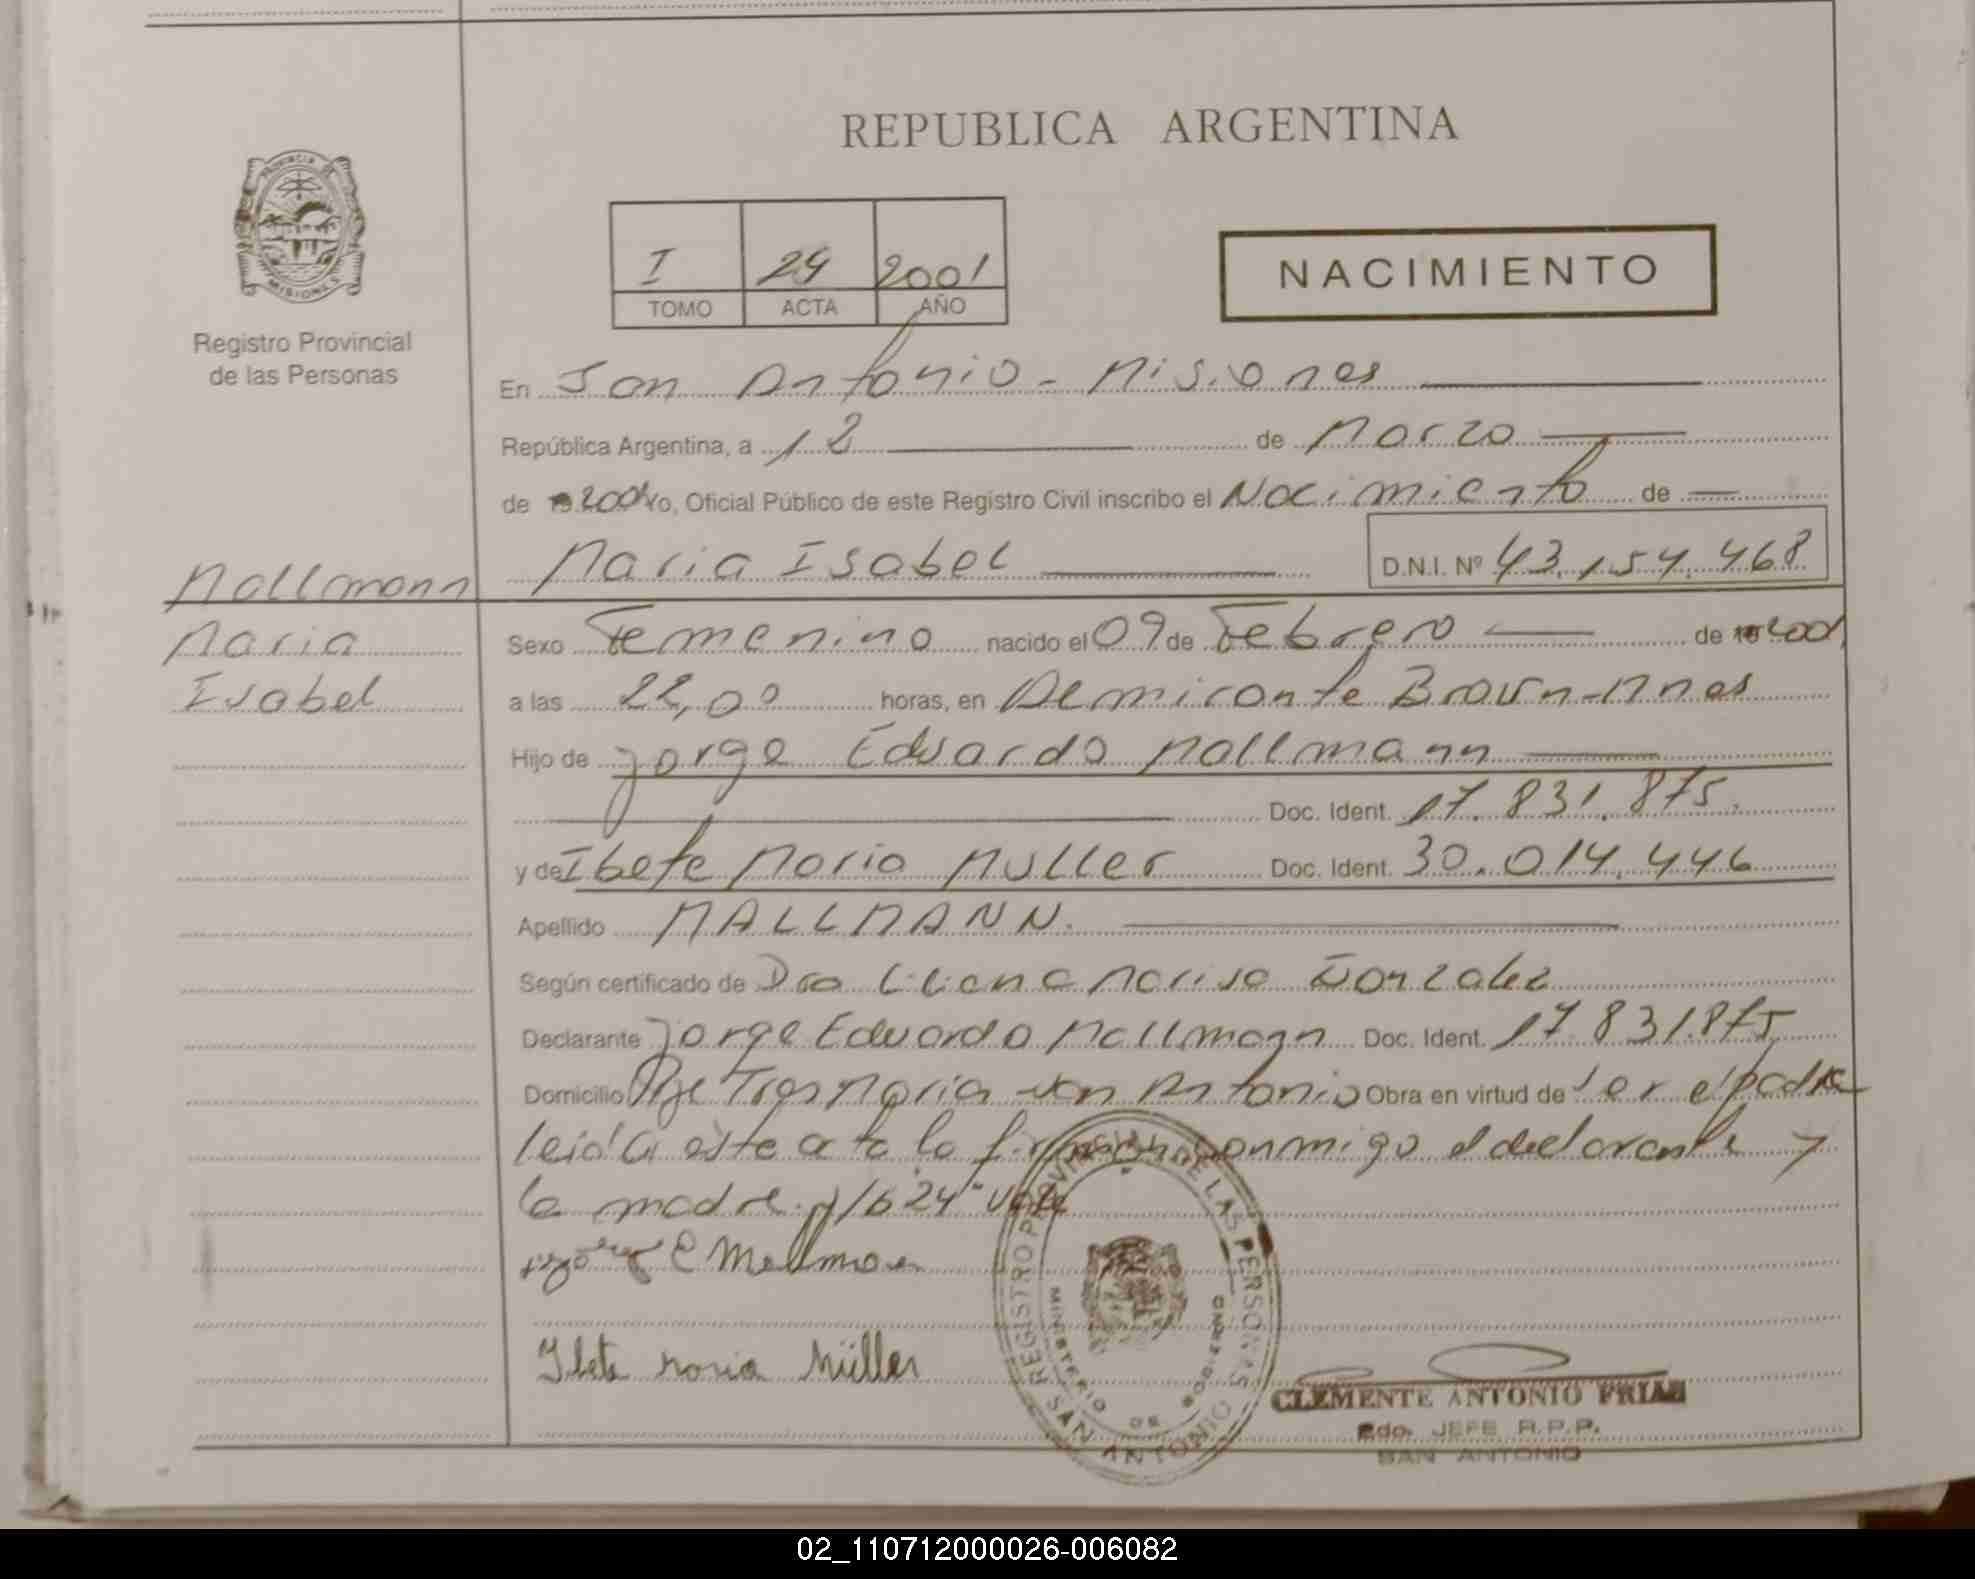 REPUBLICA ARGENTINA
PROVINCIA DE MISIONES
Registro Provincial
de las Personas
I 24 2001
TOMO ACTA AÑO
NACIMIENTO
En San Antonio - Misiones
República Argentina, a 12 de Marzo
de 2001 Yo, Oficial Público de este Registro Civil inscribo el Nacimiento de
Maria Isabel D.N.I. Nº 43.154.468
Mallmann
Maria
Isabel
Sexo Femenino nacido el 09 de Febrero de 2001
a las 22,00 horas, en Almirante Brown-Mnes
Hijo de Jorge Eduardo Mallmann
Doc. Ident. 17.831.875.
y de Ibete Maria Muller Doc. Ident. 30.014.446
Apellido MALLMANN.
Según certificado de Dra Liliana Marisa Gonzalez
Declarante Jorge Eduardo Mallmann Doc. Ident. 17.831.875
Domicilio Pje Tres Maria San Antonio Obra en virtud de ser el padre
leida este acta la firman conmigo el declarante y
la madre. 24 Vale
E Mallmann
Ibete Maria Müller
REGISTRO PROVINCIAL DE LAS PERSONAS
MINISTERIO DE GOBIERNO
SAN ANTONIO
CLEMENTE ANTONIO FRIAS
Edo. JEFE R.P.P.
SAN ANTONIO
02_110712000026-006082